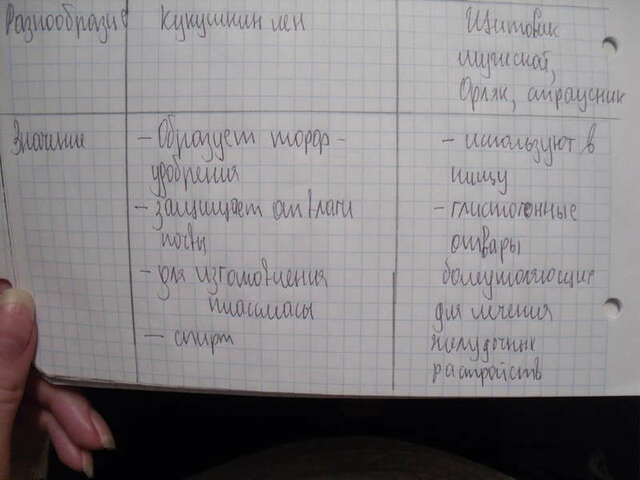 Разнообразие
Кукушкин лен
Щитовик
мужской,
Орляк, страусник
Значение
- Образует торф -
удобрения
- защищает от влаги
почву
- для изготовления
пластмасы
- спирт
- используют в
пищу
- глистогонные
отвары
болеутоляющие
для лечения
желудочных
растройств